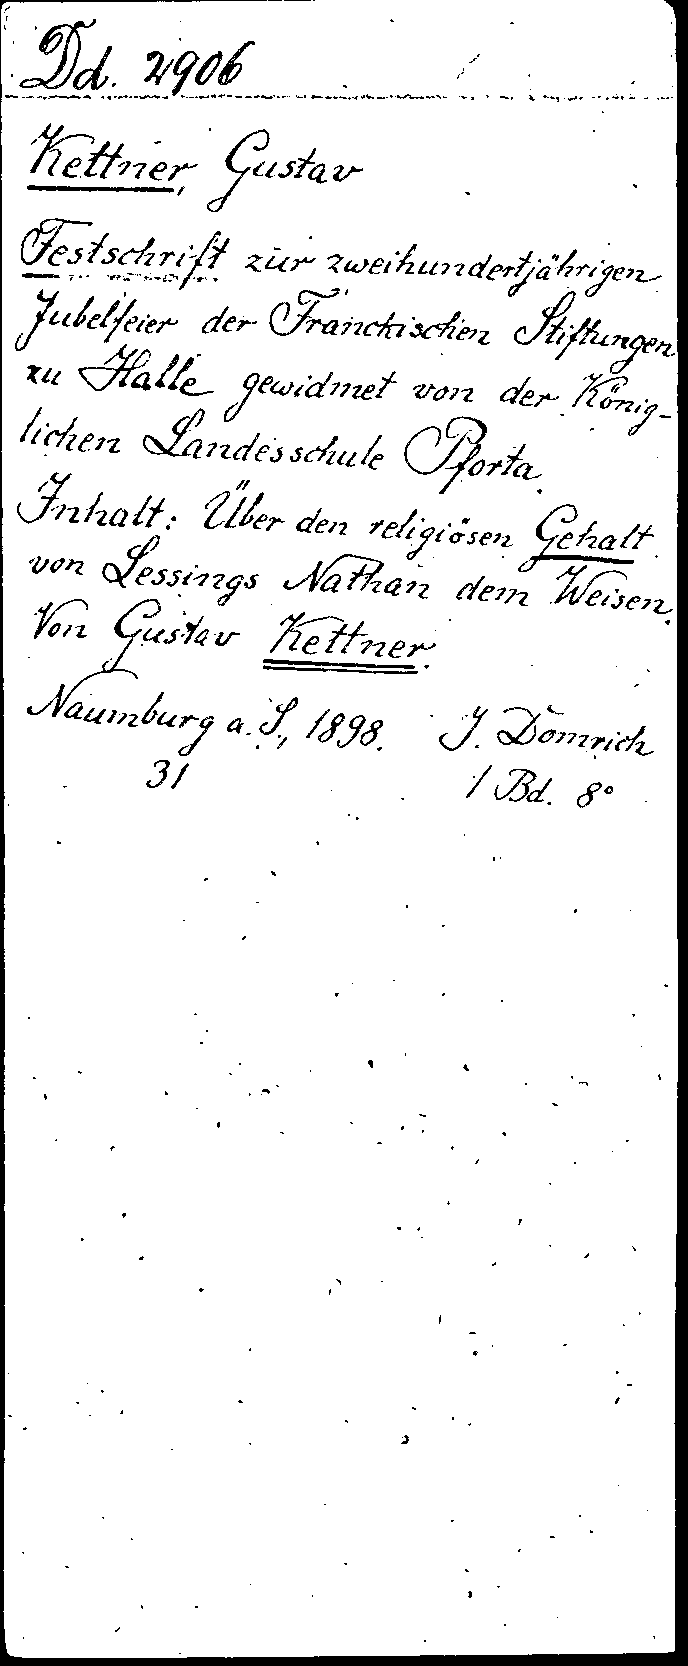 Dd. 2906
Kettner, Gustav
Festschrift zur zweihundertjährigen
Jubelfeier der Franckischen Stiftungen
zu Halle gewidmet von der König-
lichen Landesschule Pforta.
Inhalt: Über den religiösen Gehalt
von Lessings Nathan dem Weisen.
Von Gustav Kettner.
Naumburg a. S., 1898. J. Domrich
31 1 Bd. 8°